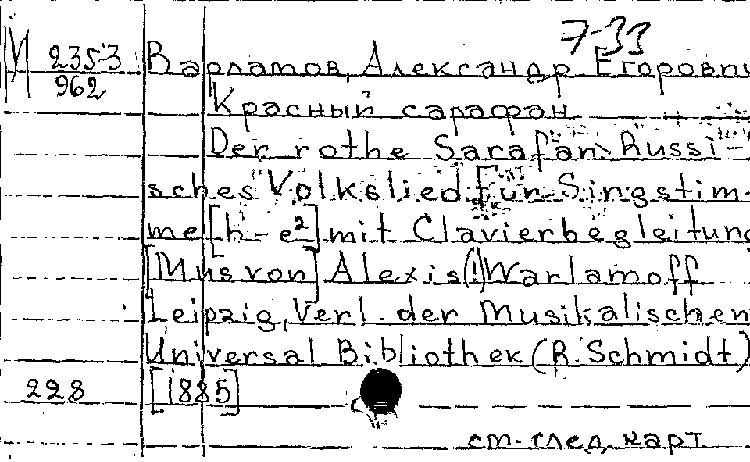 7-33
М 2353 Варламов, Александр Егорович
962
Красный сарафан
Der rothe Sarafan. Russi-
sches Volkslied für Singstim-
me [h - e²] mit Clavierbegleitung
[Mus von] Alexis (!) Warlamoff
Leipzig, Verl. der Musikalischen
Universal Bibliothek (R. Schmidt)
228 [1885]
см. след. карт.